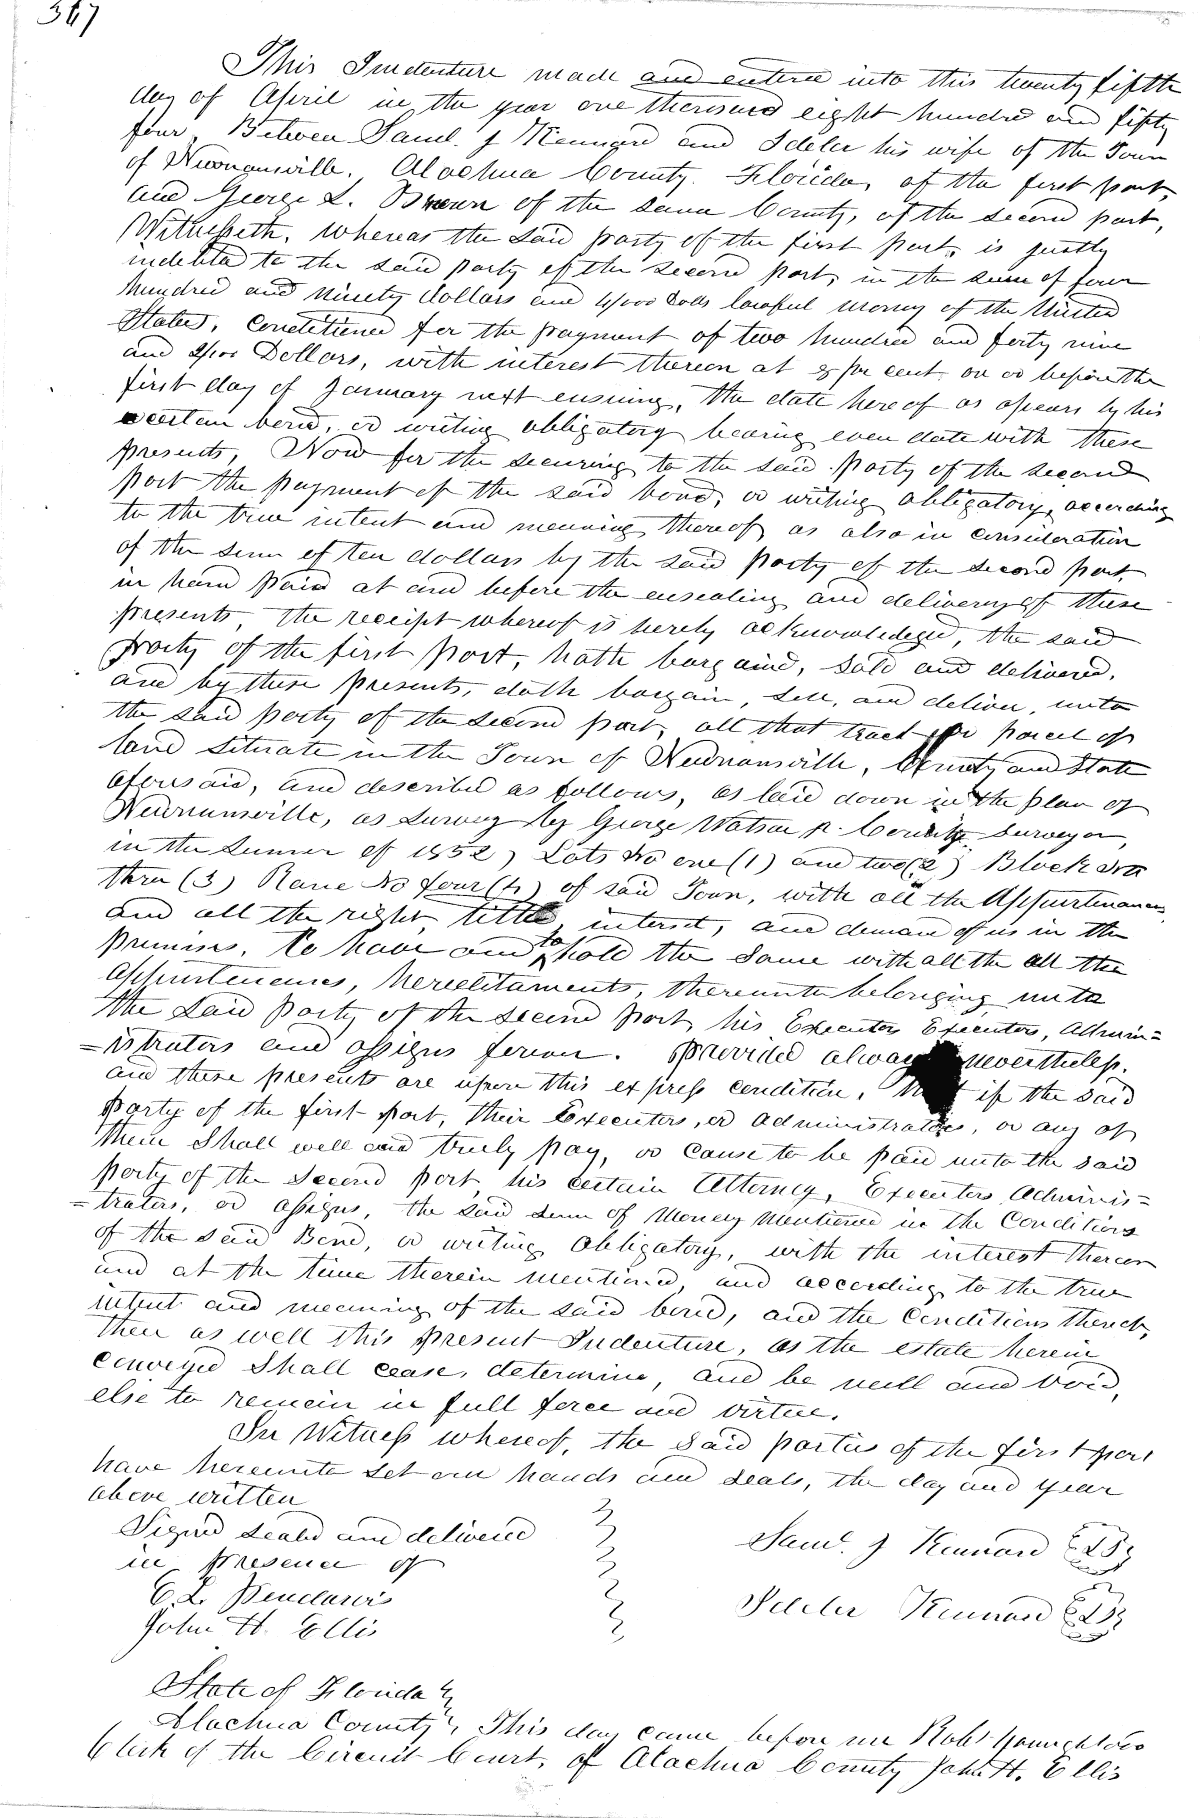 367
This Indenture made and entered into this twenty fifth
day of April in the year one thousand eight hundred and fifty
four, Between Saml. J Kennard and Ideler his wife of the Town
of Newnansville, Alachua County, Florida, of the first part,
and George L. Brown of the same County, of the second part,
Witnesseth, whereas the said party of the first part, is justly
indebted to the said party of the second part, in the sum of four
hundred and ninety dollars and 4/000 Dolls lawful money of the United
States, conditioned for the payment of two hundred and forty nine
and 2/100 Dollars, with interest thereon at 8 pr cent on or before the
first day of January next ensuing, the date hereof as apears by his
certain bond, or writing obligatory bearing even date with these
presents, Now for the securing to the said party of the second
part the payment of the said bond, or writing obligatory, according
to the true intent and meaning thereof, as also in consideration
of the sum of ten dollars by the said party of the second part,
in hand paid at and before the ensealing and delivery of these
presents, the receipt whereof is hereby acknowledged, the said
party of the first part, hath bargaind, sold and delivered,
and by these presents, doth bargain, sell, and deliver, unto
the said party of the second part, all that tract or parcel of
land situate in the Town of Newnansville, County and State
aforesaid, and described as follows, as laid down in the plan of
Newnansville, as survey by George Watson Jr. County surveyor,
in the Summer of 1852, Lots No one (1) and two (2) Block No
three (3) Rane No four (4) of said Town, with all the Appurtenances
and all the right, title, interest, and demand of us in the
premises, To have and to hold the same with all the all the
appurtenances, hereditaments, thereunto belonging unto
the said Party of the second part, his Executors Executors, Admin=
=istrators and assigns forever. provided always nevertheless,
and these presents are upon this express condition, that if the said
Party of the first part, their Executors, or administrators, or any of
them shall well and truly pay, or cause to be paid unto the said
party of the second part, his certain Attorney, Executors Adminis=
=trators, or assigns, the said sum of Money Mentioned in the Conditions
of the said Bond, or writing obligatory, with the interest thereon
and at the time therein mentioned, and according to the true
intent and meaning of the said bond, and the Conditions thereof,
then as well this present Indenture, as the estate herein
conveyed shall cease, determine, and be null and void,
else to remain in full force and virtue.
In Witness whereof, the said parties of the first part
have hereunto set our hands and seals, the day and year
above written
Signed sealed and delivered
in presence of
E. L. Pendarvis
John H. Ellis
Saml. J Kennard LS
Ideler Kennard LS
State of Florida
Alachua County, This day came before me Robt Youngblood
Clerk of the Circuit Court, of Alachua County John H. Ellis